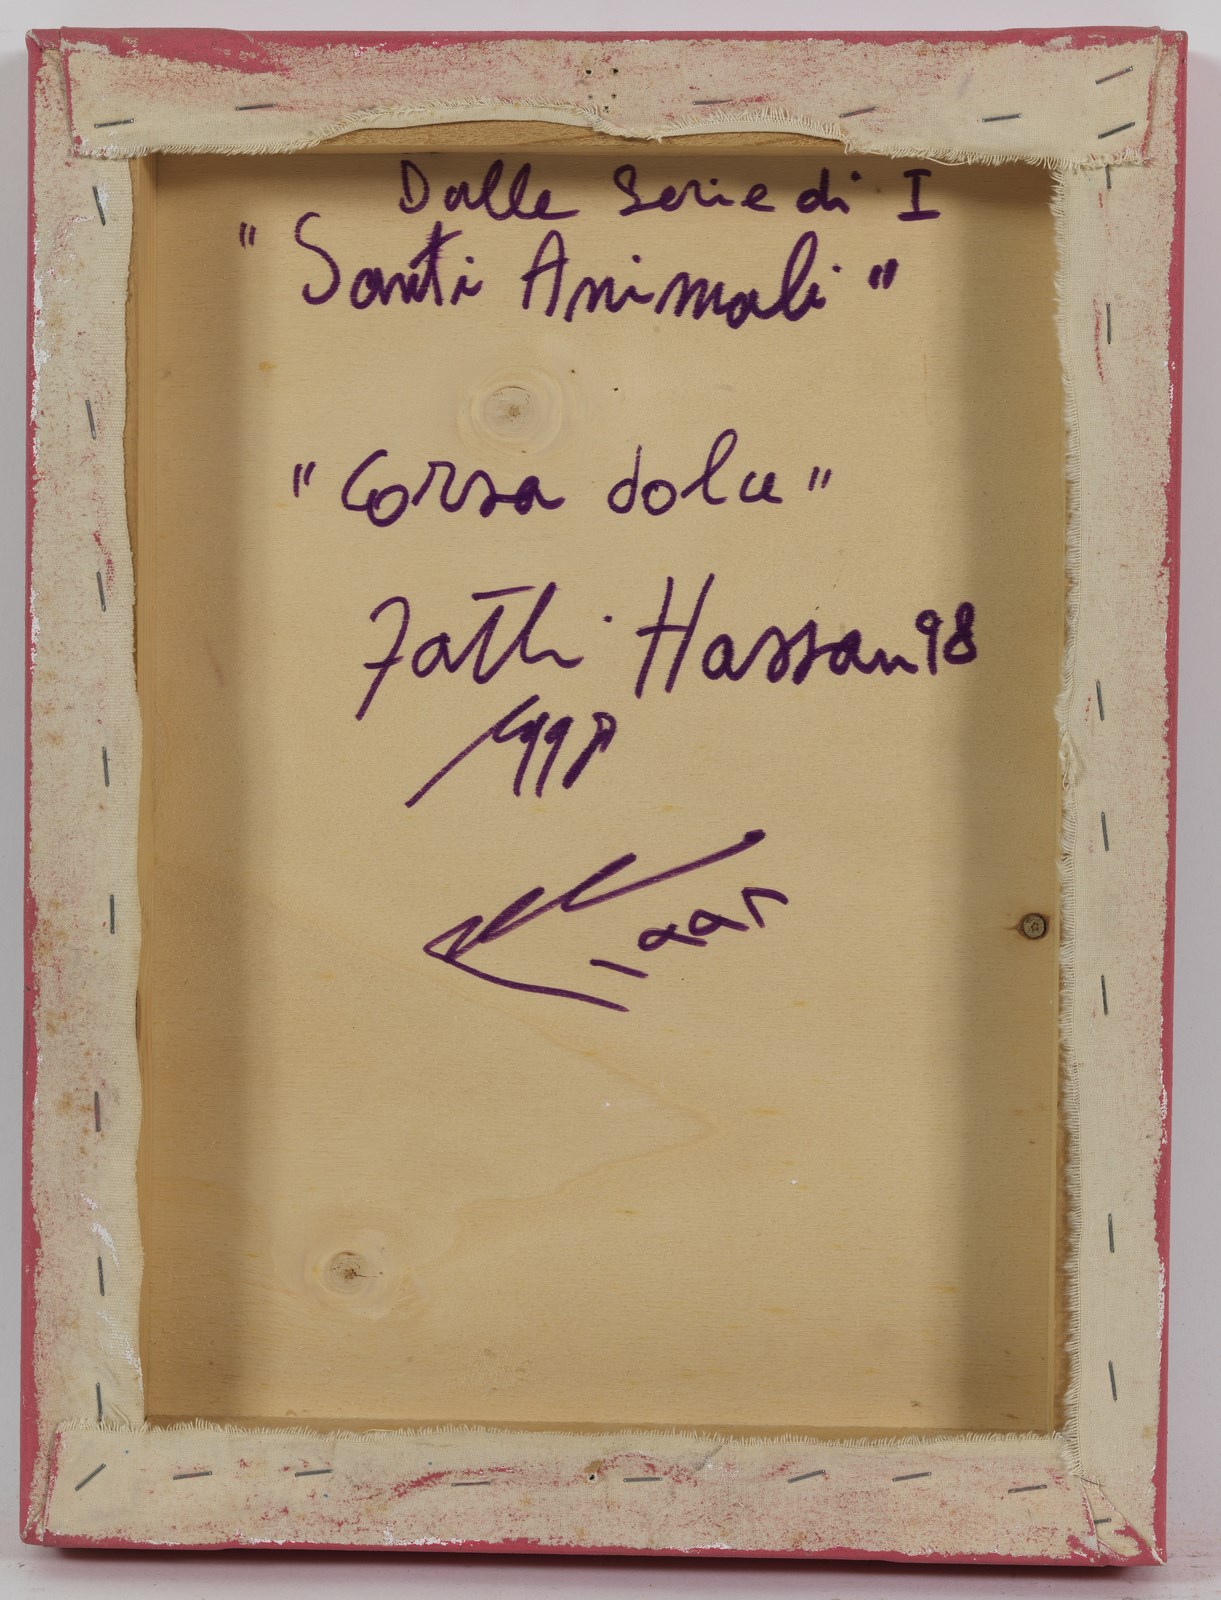 Dalle Serie di I
"Santi Animali"
"Corsa dolce"
Fathi Hassan 98
1998